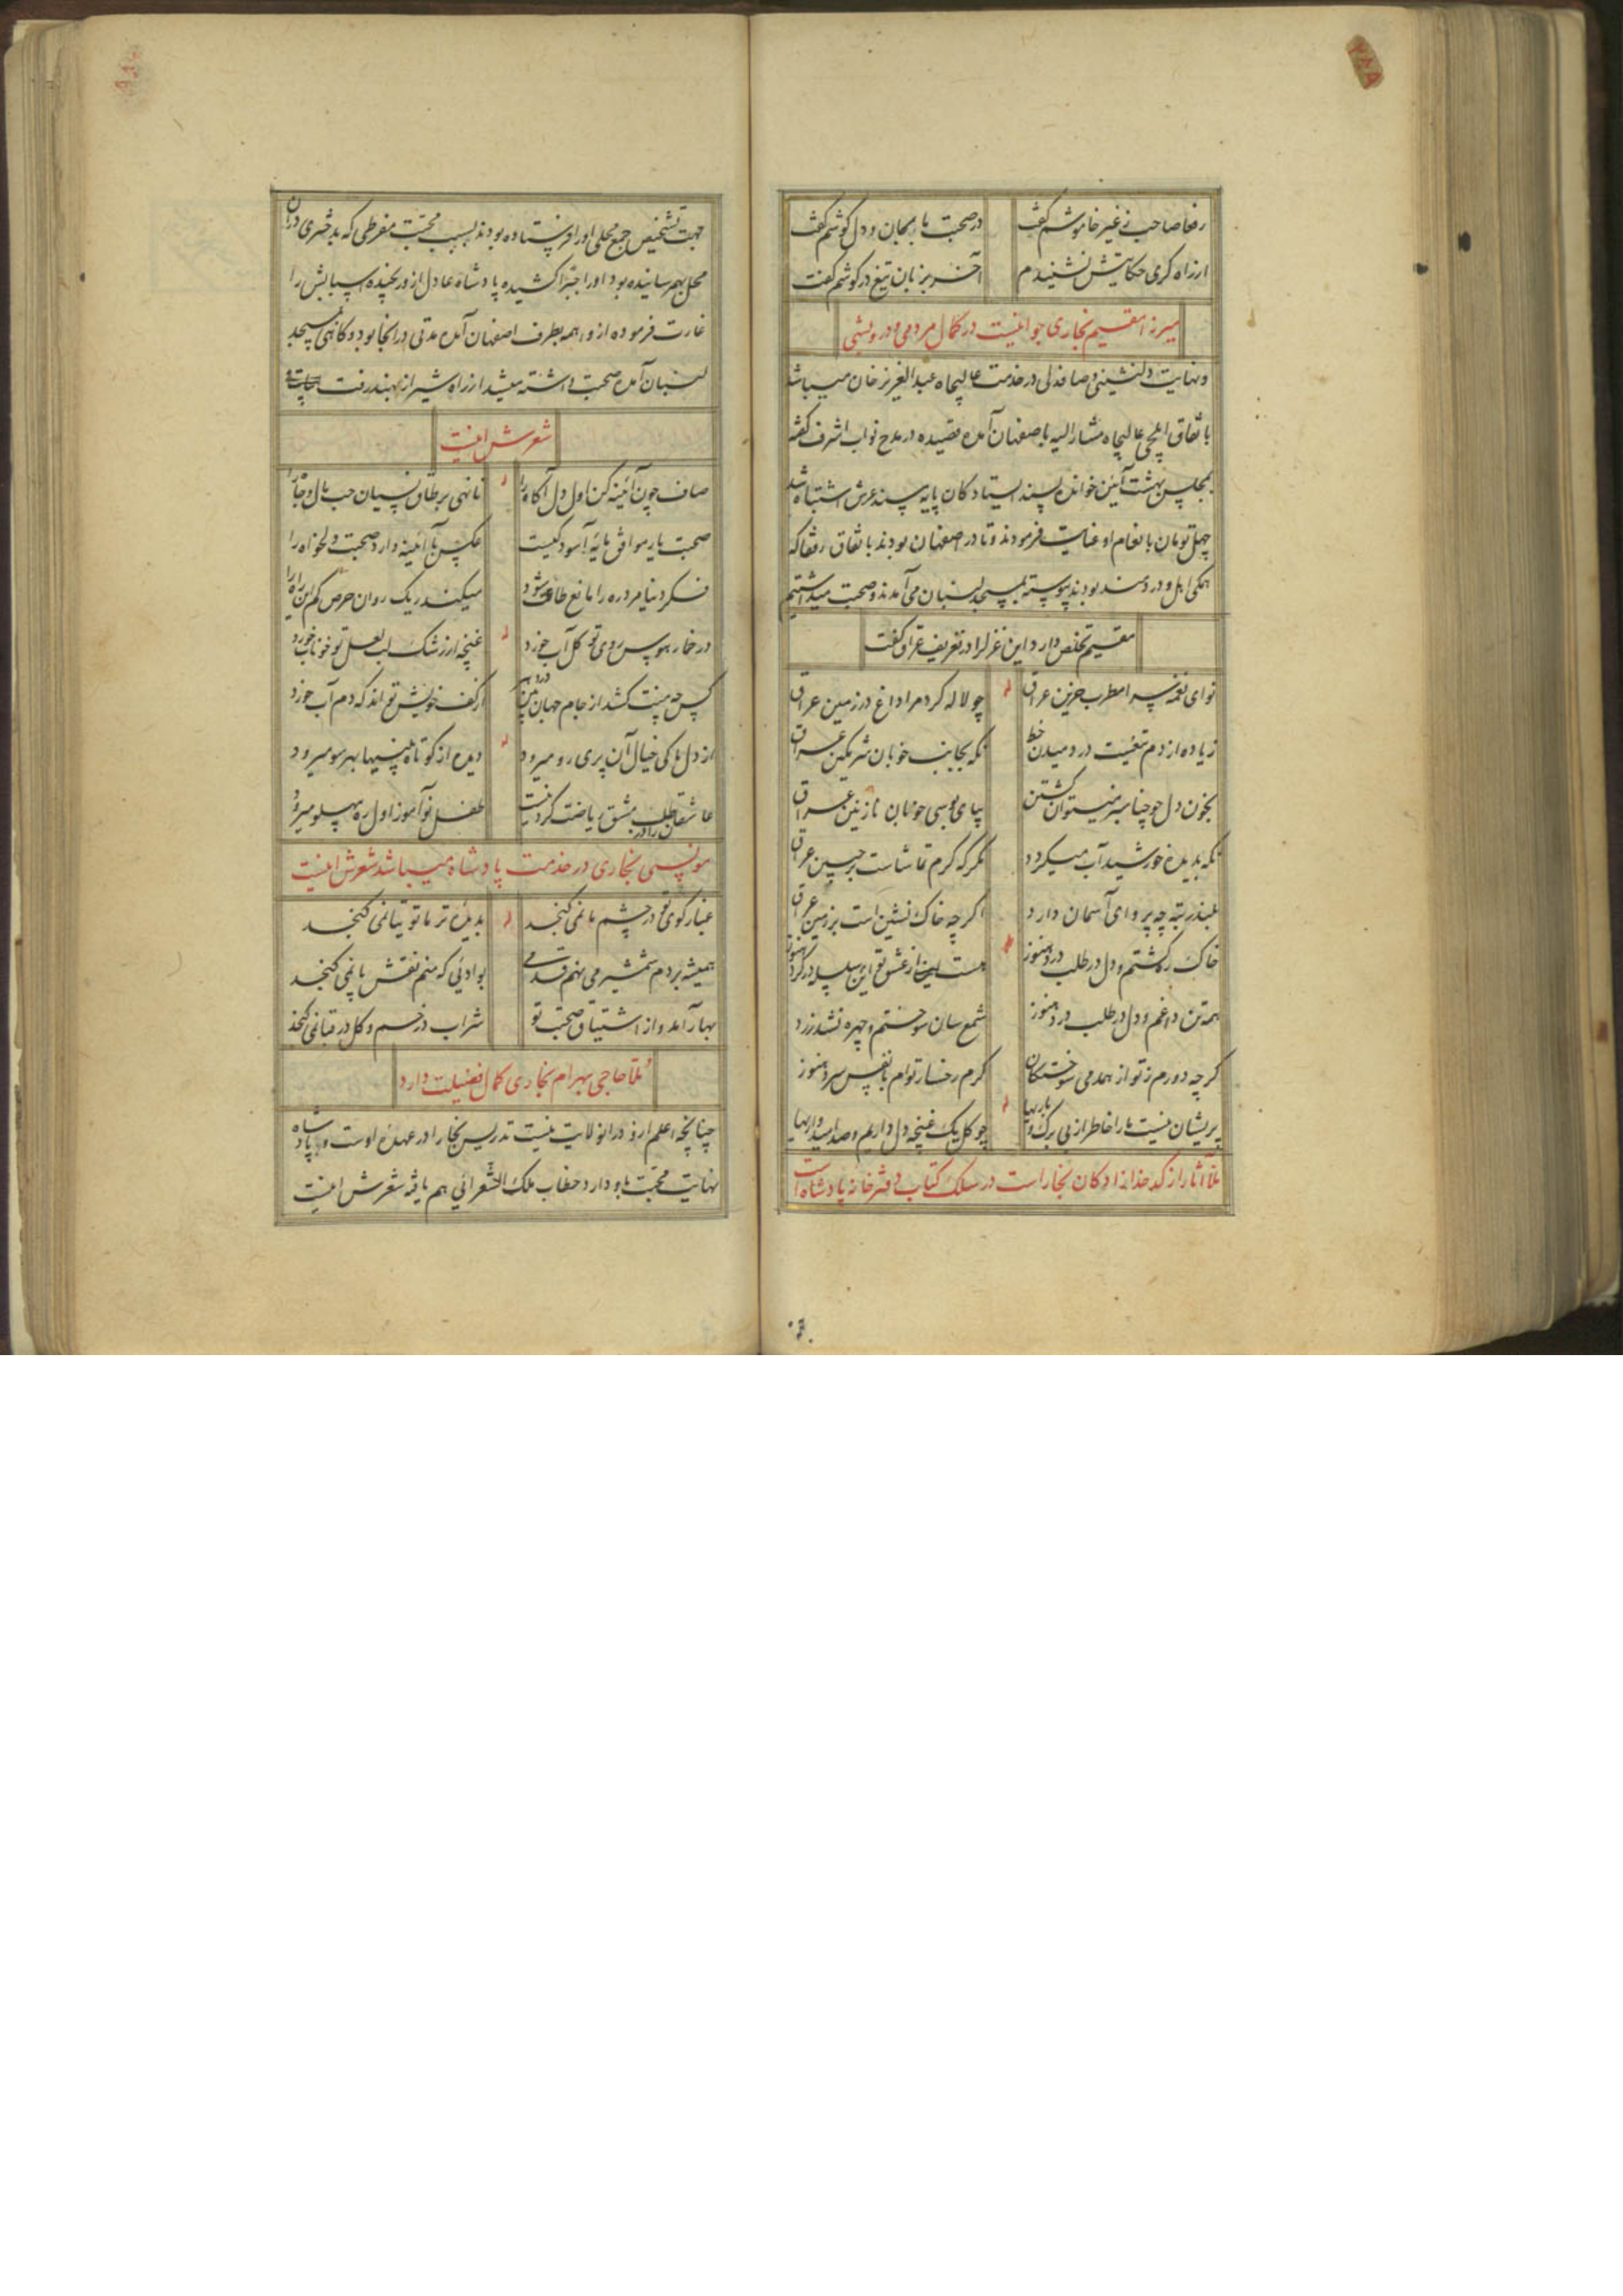 رفا صاحب ز غیر خاموشم گفت
در صحبت ما بجان و دل گوشم گفت
از راه کری حکایتش نشنیدم
آخر بزبان تیغ در گوشم گفت
میرزا مقیم بخاری جوانیست در کمال مردمی و درویشی
و نهایت دلنشینی و صافدلی در خدمت عالیجاه عبدالعزیز خان میباشد
باتفاق ایلچی عالیجاه مشارالیه باصفهان آمده قصیده در مدح نواب اشرف گفته
بمجلس بهشت آیین خوانده پسند ایستادکان پایه سند عرش اشتباه شد
چهل تومان بانعام او عنایت فرمودند و تا در اصفهان بودند باتفاق رفقا که
همگی اهل و دردمند بودند پیوسته بمسجد لنبان می آمدند و صحبت میداشتیم
مقیم تخلص دارد این غزلرا در تعریف عراق گفت
نوای نغمه سرا مطرب حزین عراق
چو لاله کرد مرا داغ در زمین عراق
زیاده از دم تیغست در دمیدن خط
نگه بجانب خوبان شرمگین عراق
بخون دل چو حنا سبز میتوان گشتن
بپای بوسی جوانان نازنین عراق
نگه بدیده خورشید آب میگردد
مگر که گرم تماشاست بر جبین عراق
بلند رتبه چه پروای آسمان دارد
اگر چه خاک نشین است بر زمین عراق
خاک ره گشتم و دل در طلب درد هنوز
هست از عشق تو این سلسله در گرد هنوز
همه تن داغم و دل در طلب درد هنوز
شمع سان سوختم و چهره نشد زرد
گر چه دورم ز تو از همدمی سوختگان
گرم رخسار توام با نفس سرد هنوز
پریشان نیست ما را خاطر از بی برگ و باریها
چو گل یک غنچه دل داریم و صد امیدواریها
ملا آثار از کدخدازادگان بخاراست در سلک کتاب دفترخانه پادشاه است
جهت تشخیص جمع محلی او را فرستاده بودند بسبب محبت مفرطی که بدختری در آن
محل بهم رسانیده بود او را جبرا کشیده پادشاه عادل از او رنجیده اسبابش را
غارت فرموده از واهمه بطرف اصفهان آمده مدتی در آنجا بود و گاهی بمسجد
لنبان آمده صحبت داشته میشد از راه شیراز بهند رفت
شعرش اینست
صاف چون آئینه کن اول دل آگاه را
تا نهی بر طاق نسیان حب مال و جاه را
صحبت یار موافق مایه آسودگیست
عکس با آئینه دارد صحبت دلخواه را
فکر دنیا مرد ره را مانع طاعت شود
میکند ریگ روان حرص گم این راه را
در خمار هوس روی تو گل آب خورد
غنچه از رشک لب لعل تو خوناب خورد
کس چه منت کشد از جام جهان بین
از کف خویش تواند که دم آب خورد
از دل ما کی خیال آن پری رو میرود
دیده از کوتاه بینیها بهر سو میرود
عاشقان را در طلب مشق ریاضت کردنیست
طفل نوآموز اول ره بپهلو میرود
مونسی بخاری در خدمت پادشاه میباشد شعرش اینست
غبار کوی تو در چشم ما نمی گنجد
بدیده تر ما توتیا نمی گنجد
همیشه بر دم شمشیر می نهم قدمی
بوادئی که منم نقش پا نمی گنجد
بهار آمد و از اشتیاق صحبت تو
شراب در خم و گل در قبا نمی گنجد
ملا حاجی بهرام بخاری کمال فضیلت دارد
چنانچه اعلم از او در آن ولایت نیست تدریس بخارا در عهده اوست و پادشاه
نهایت محبت باو دارد خطاب ملک الشعرائی هم یافته شعرش اینست